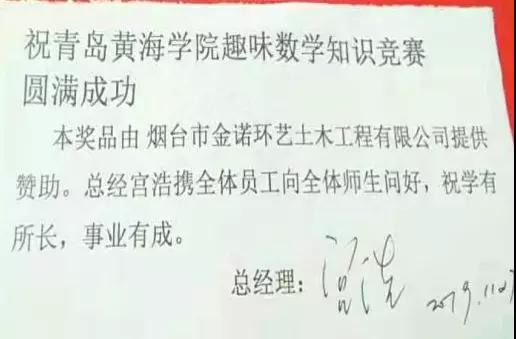 祝青岛黄海学院趣味数学知识竞赛
圆满成功
本奖品由 烟台市金诺环艺土木工程有限公司提供
赞助。总经宫浩携全体员工向全体师生问好，祝学有
所长，事业有成。
总经理：宫浩 2019.11.27